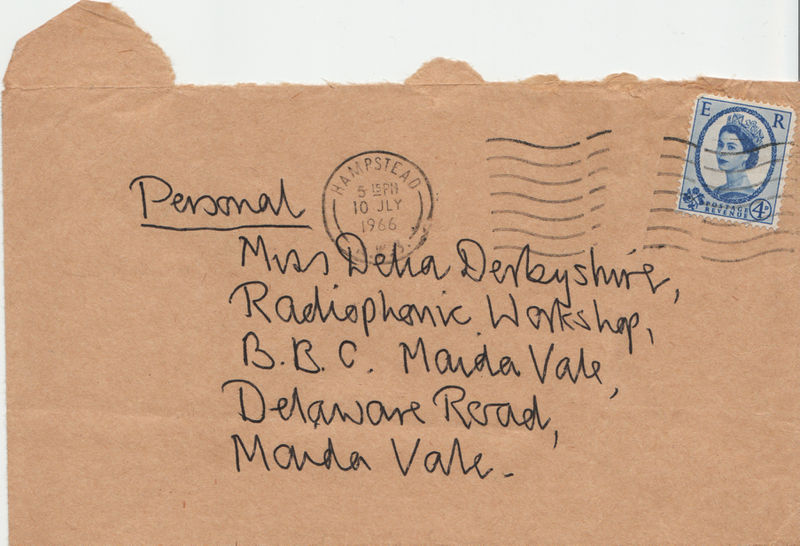 E R
POSTAGE
REVENUE
4D
HAMPSTEAD
5 15 PM
10 JLY
1966
N.W.3.
Personal
Miss Delia Derbyshire,
Radiophonic Workshop,
B.B.C. Maida Vale,
Delaware Road,
Maida Vale.